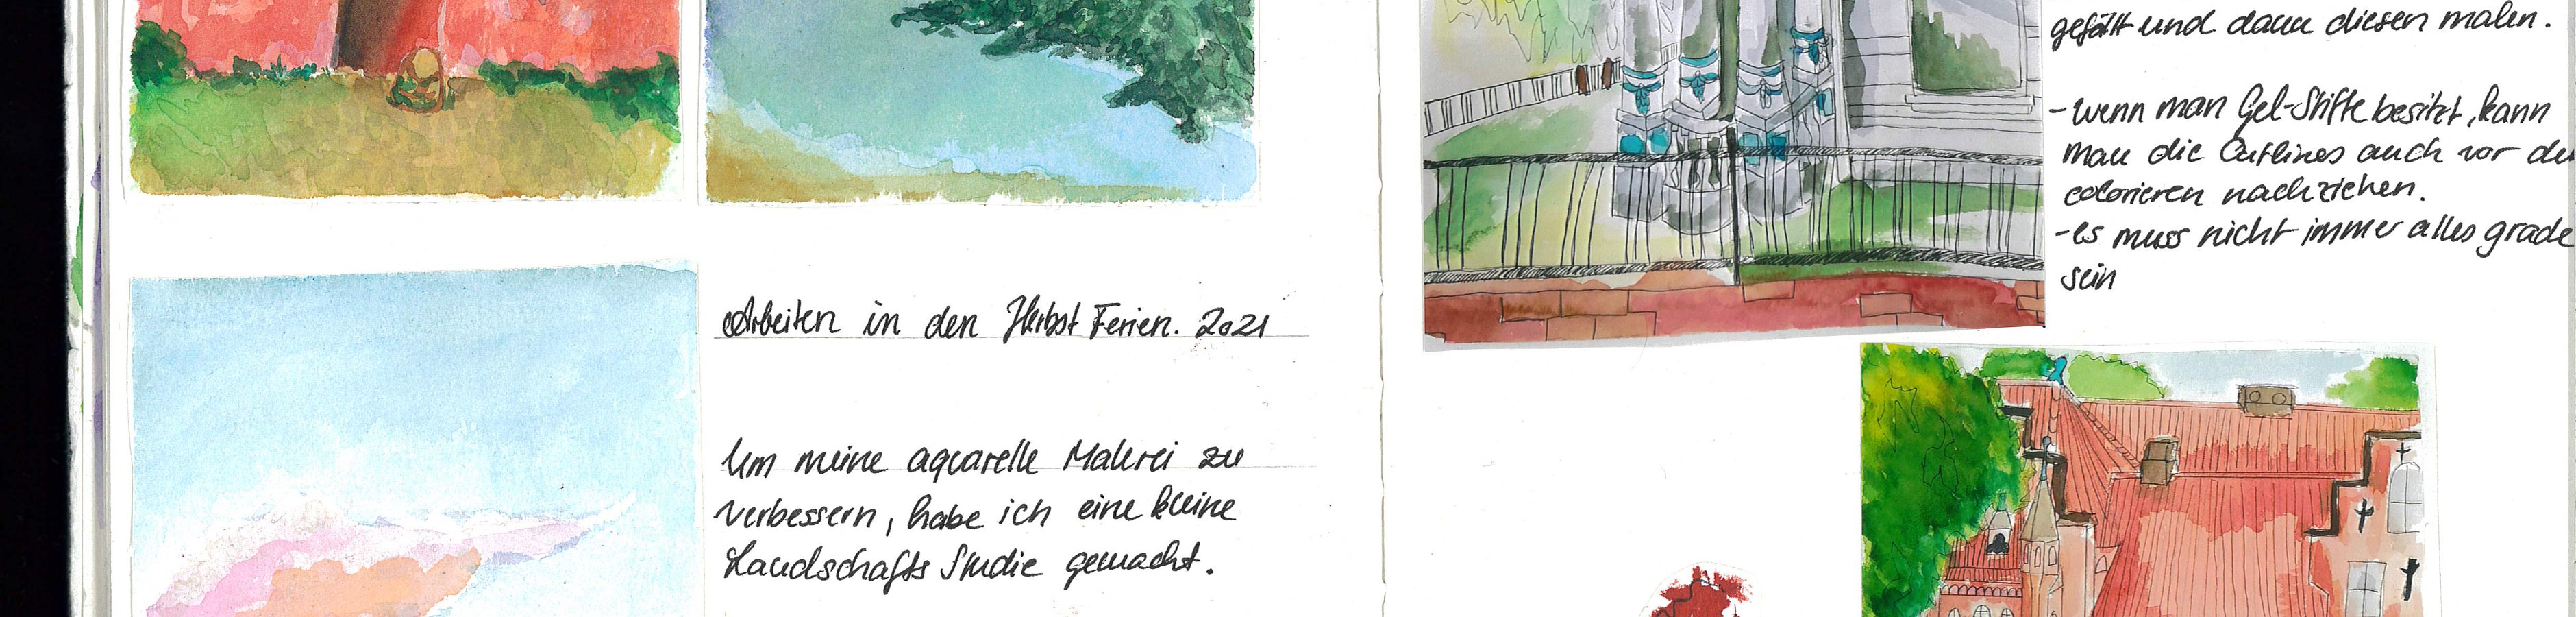 Arbeiten in den Herbst Ferien. 2021
Um meine aquarelle Malerei zu
verbessern, habe ich eine kleine
Landschafts Studie gemacht.
gefällt und dann diesen malen.
-wenn man Gel-Stifte besitzt, kann
man die Outlines auch vor de
colorieren nachziehen.
-es muss nicht immer alles grade
sein